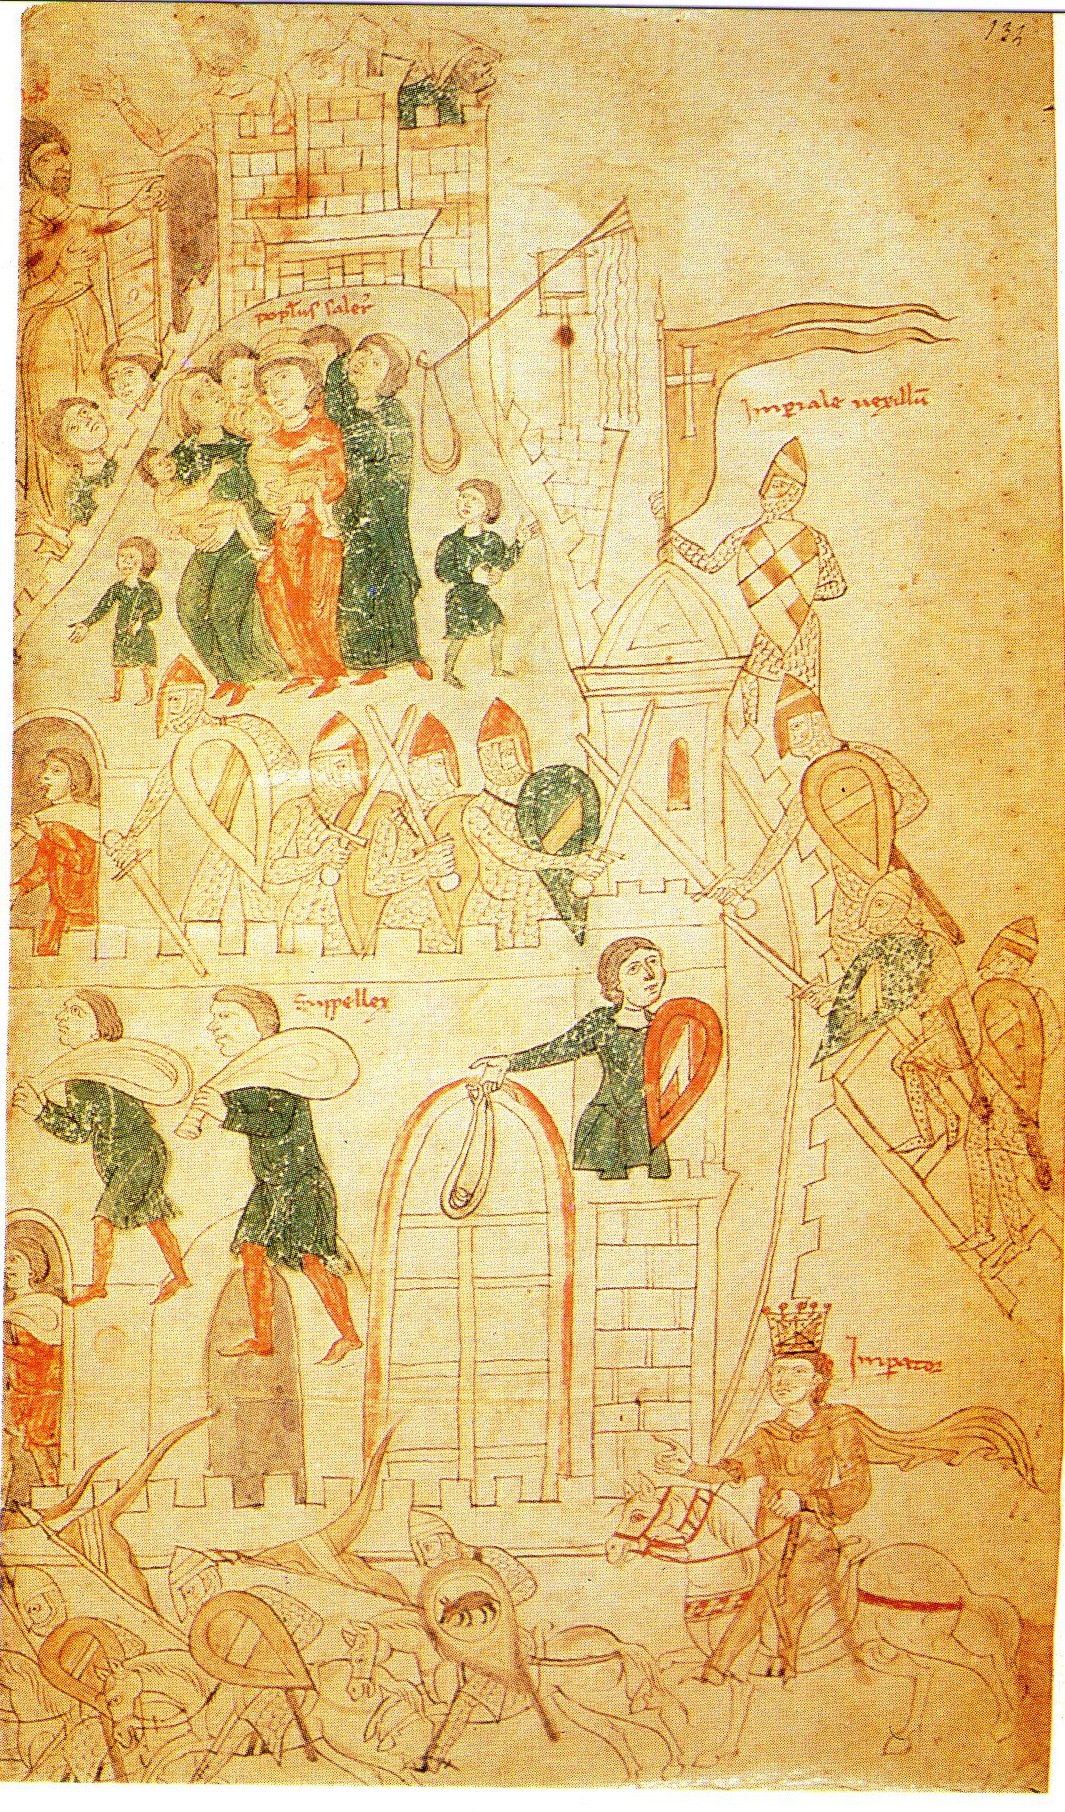 134
popl̄us saler̄
Imp̱iale uexillū
Suppellex
Imp̱ator